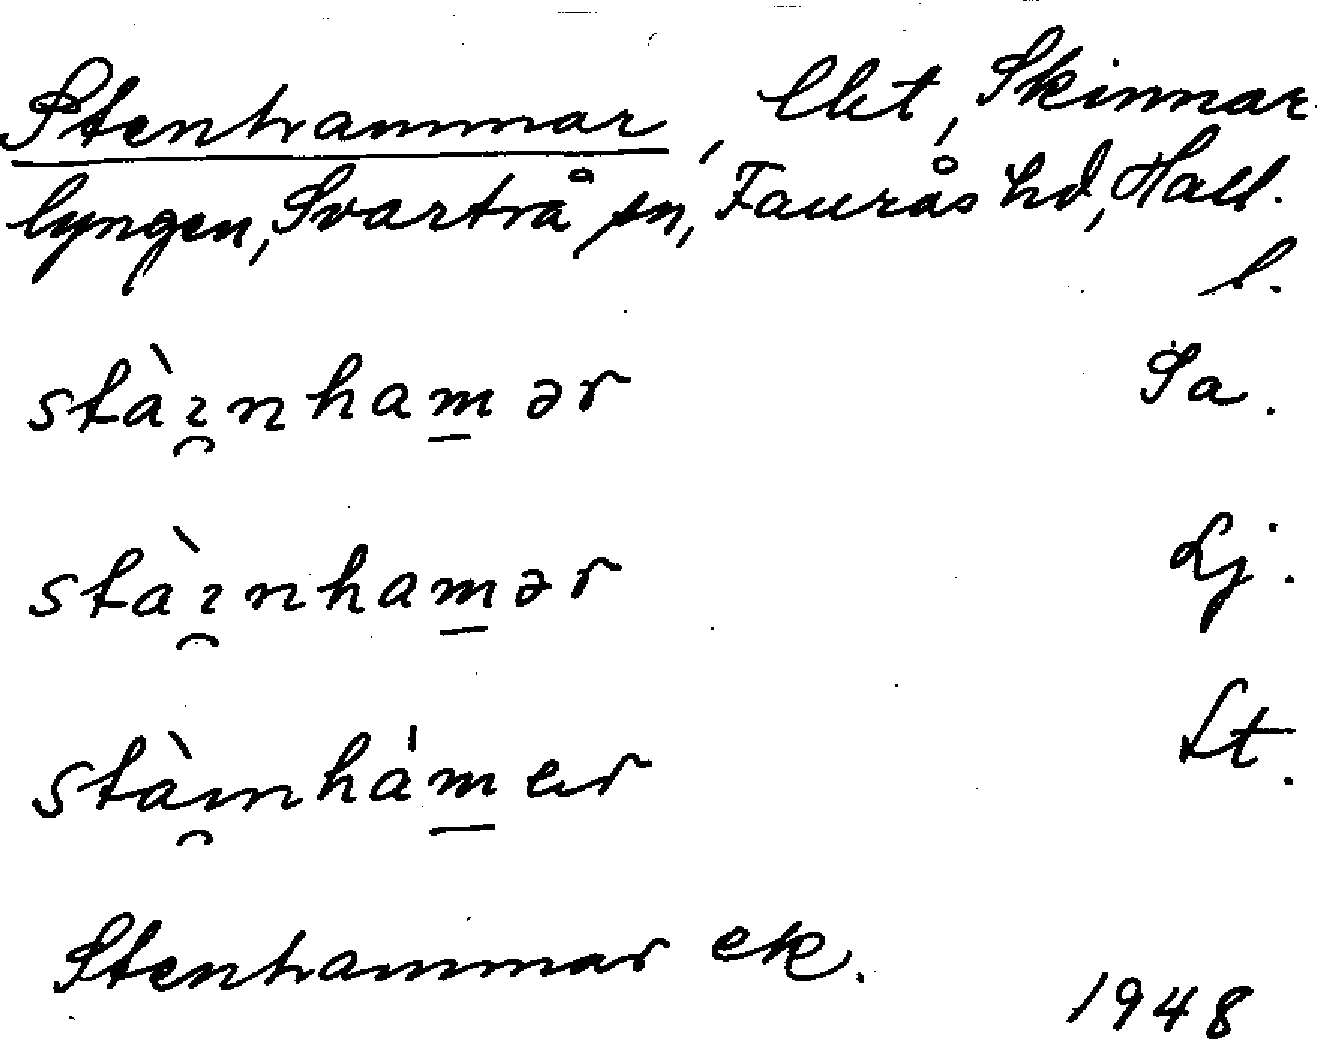 Stenhammar, lht, Skinnar-
lyngen, Svartrå sn, Faurås hd, Hall.
l.
stàɪ̯nham̲ər Sa.
stàɪ̯nham̲ər Lj.
stàɪ̯nhám̲er Lt.
Stenhammar ek.
1948